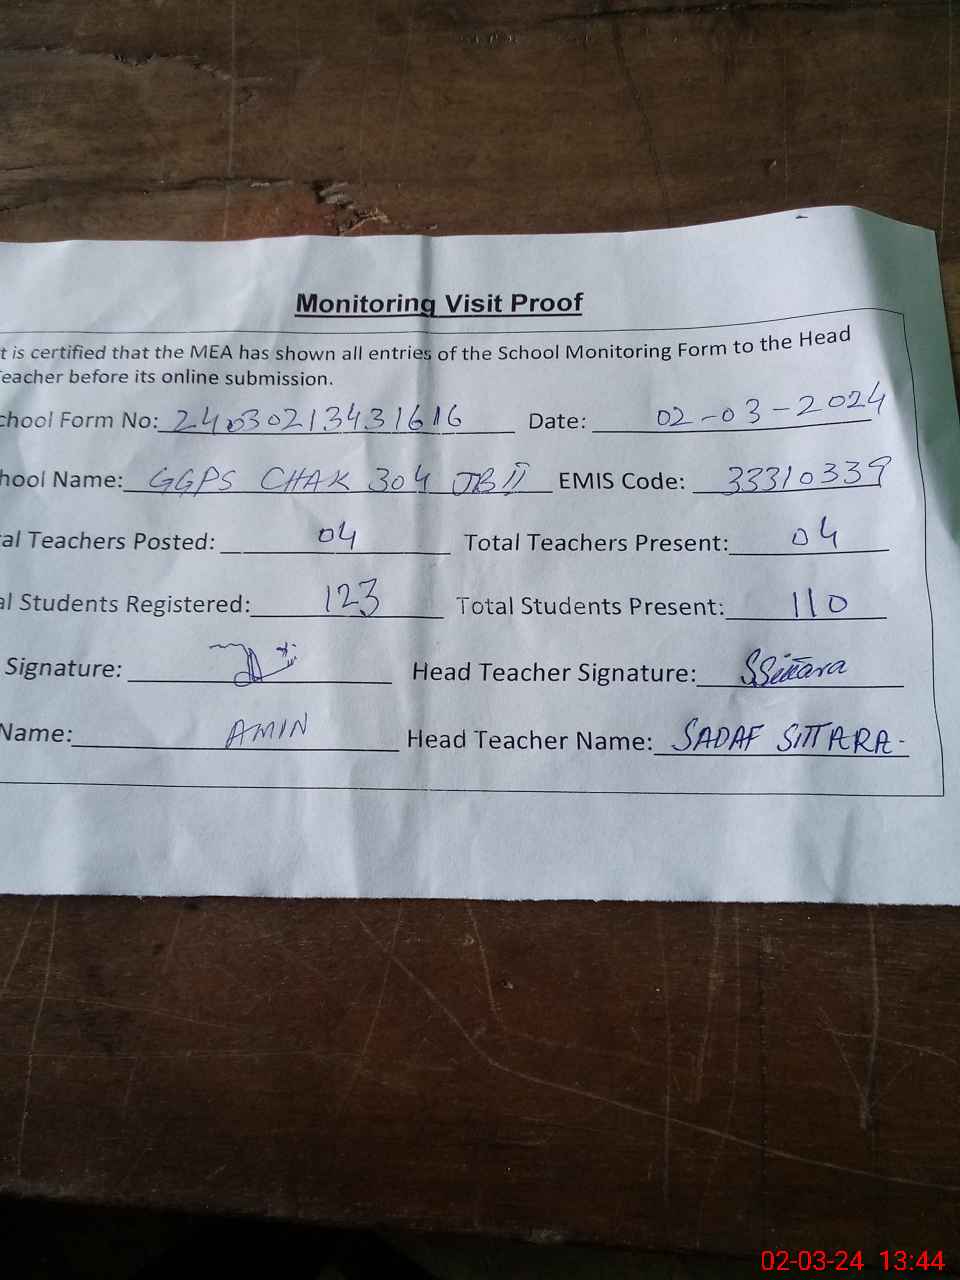 Monitoring Visit Proof
t is certified that the MEA has shown all entries of the School Monitoring Form to the Head
eacher before its online submission.
chool Form No: 24030213431616 Date: 02-03-2024
hool Name: GGPS CHAK 304 JB II EMIS Code: 33310339
al Teachers Posted: 04 Total Teachers Present: 04
al Students Registered: 123 Total Students Present: 110
Signature: Head Teacher Signature: SSittara
Name: AMIN Head Teacher Name: SADAF SITTARA-
02-03-24 13:44